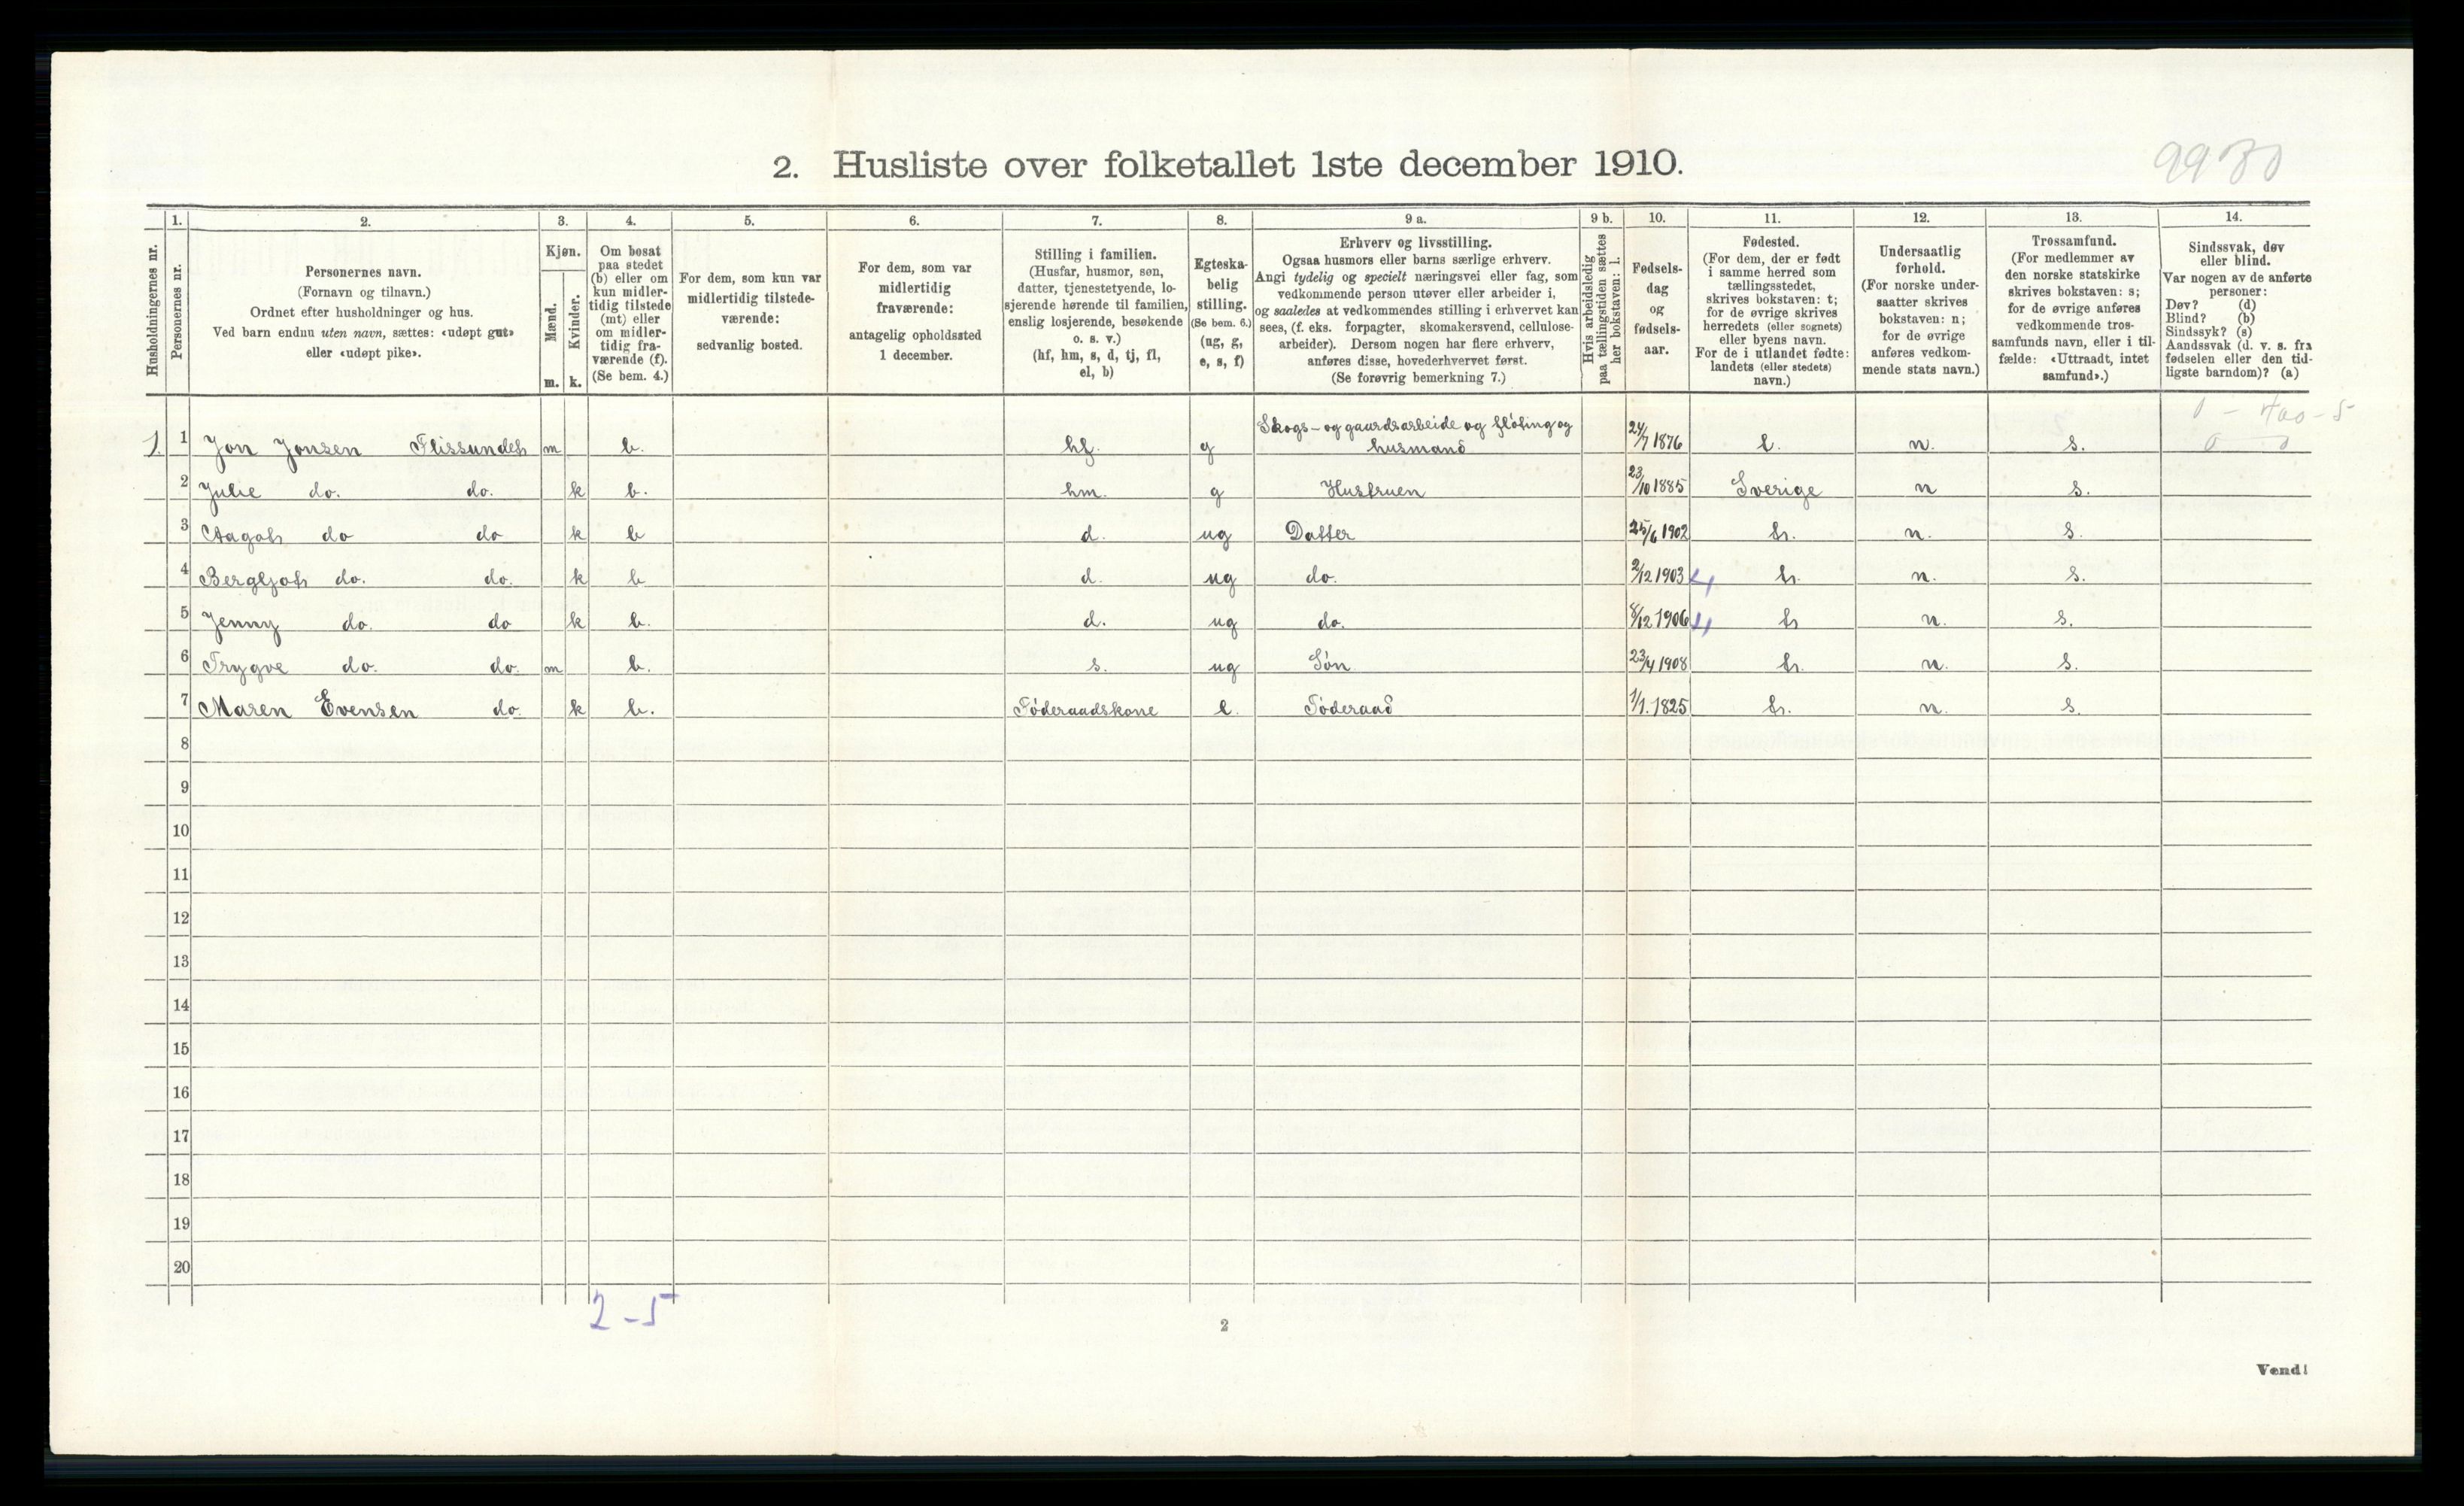 2. Husliste over folketallet 1ste december 1910.
Husholdningernes nr.
1.
Personernes nr.
2.
Personernes navn.
(Fornavn og tilnavn.)
Ordnet efter husholdninger og hus.
Ved barn endnu uten navn, sættes: «udøpt gut»
eller «udøpt pike».
3.
Kjøn.
Mænd.
Kvinder.
m. k.
4.
Om bosat
paa stedet
(b) eller om
kun midler-
tidig tilstede
(mt) eller
om midler-
tidig fra-
værende (f).
(Se bem. 4.)
5.
For dem, som kun var
midlertidig tilstede-
værende:
sedvanlig bosted.
6.
For dem, som var
midlertidig
fraværende:
antagelig opholdssted
1 december.
7.
Stilling i familien.
(Husfar, husmor, søn,
datter, tjenestetyende, lo-
sjerende hørende til familien,
enslig losjerende, besøkende
o. s. v.)
(hf, hm, s, d, tj, fl,
el, b)
8.
Egteska-
belig
stilling.
(Se bem. 6.)
(ug, g,
e, s, f)
9 a.
Erhverv og livsstilling.
Ogsaa husmors eller barns særlige erhverv.
Angi tydelig og specielt næringsvei eller fag, som
vedkommende person utøver eller arbeider i,
og saaledes at vedkommendes stilling i erhvervet kan
sees, (f. eks. forpagter, skomakersvend, cellulose-
arbeider). Dersom nogen har flere erhverv,
anføres disse, hovederhvervet først.
(Se forøvrig bemerkning 7.)
9 b.
Hvis arbeidsledig
paa tællingstiden sættes
her bokstaven: l.
10.
Fødsels-
dag
og
fødsels-
aar.
11.
Fødested.
(For dem, der er født
i samme herred som
tællingsstedet,
skrives bokstaven: t;
for de øvrige skrives
herredets (eller sognets)
eller byens navn.
For de i utlandet fødte:
landets (eller stedets)
navn.)
12.
Undersaatlig
forhold.
(For norske under-
saatter skrives
bokstaven: n;
for de øvrige
anføres vedkom-
mende stats navn.)
13.
Trossamfund.
(For medlemmer av
den norske statskirke
skrives bokstaven: s;
for de øvrige anføres
vedkommende tros-
samfunds navn, eller i til-
fælde: «Uttraadt, intet
samfund».)
14.
Sindssvak, døv
eller blind.
Var nogen av de anførte
personer:
Døv? (d)
Blind? (b)
Sindssyk? (s)
Aandssvak (d. v. s. fra
fødselen eller den tid-
ligste barndom)? (a)
1. 1 Jon Jonsen Flissundet m b. hf. g Skogs- og gaardsarbeide og fløting og husmand 24/7 1876 t. n. s.
2 Julie do. do. k b. hm. g Hustruen 23/10 1885 Sverige n s.
3 Aagot do do k b d. ug Datter 25/6 1902 t. n. s.
4 Bergljot do. do. k b d. ug do. 2/12 1903 t. n. s.
5 Jenny do. do k b. d. ug do. 8/12 1906 t n. s.
6 Trygve do. do. m b. s. ug Søn 23/4 1908 t. n. s.
7 Maren Evensen do. k b. Føderaadskone e. Føderaad 1/1. 1825 t. n. s.
8
9
10
11
12
13
14
15
16
17
18
19
20
2 - 5
2
Vend!